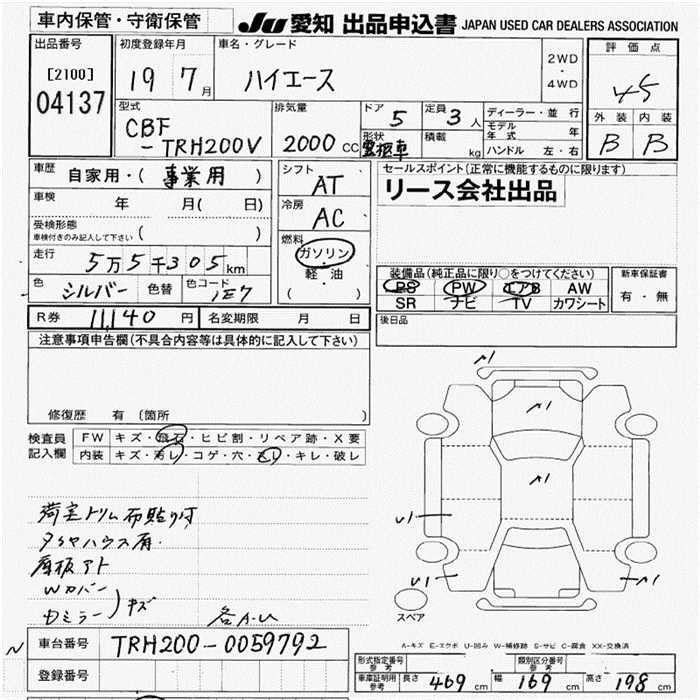 車内保管・守衛保管
JU 愛知 出品申込書 JAPAN USED CAR DEALERS ASSOCIATION
出品番号
[2100]
04137
初度登録年月
19 7月
車名・グレード
ハイエース
2WD
・
4WD
評価点
4.5
外装 内装
B B
型式
CBF
-TRH200V
排気量
2000 cc
ドア 5
定員 3人
形状
積載 kg
ディーラー・並行
モデル年式 年
ハンドル 左・右
車歴 自家用・( 事業用 )
車検 年 月( 日)
受検形態
車検付きのみ記入して下さい ( )
走行 5万5千305km
色 シルバー 色替 色コード 1E7
シフト AT
冷房 AC
燃料
ガソリン
・
軽油
( )
セールスポイント(正常に機能するものに限ります)
リース会社出品
装備品(純正品に限り○をつけてください)
PS PW エアB AW
SR ナビ TV カワシート
新車保証書
有・無
後日品
R券 11,140 円 名変期限 月 日
注意事項申告欄(不具合内容等は具体的に記入して下さい)
修復歴 有 (箇所 )
検査員記入欄
FW キズ・飛石・ヒビ割・リペア跡・X要
内装 キズ・汚レ・コゲ・穴・スレ・キレ・破レ
荷室トリム布貼り付
タイヤハウス有.
床板アト
Wカバー
Dミラー
キズ
各A・U
N
車台番号 TRH200-0059792
登録番号
A1
A1
A1
U1
U1
A1
スペア
A-キズ E-エクボ U-凹み W-補修跡 S-サビ C-腐食 XX-交換済
形式指定番号 参考
類別区分番号 参考
車庫証明用参考 長さ 469 cm 幅 169 cm 高さ 198 cm